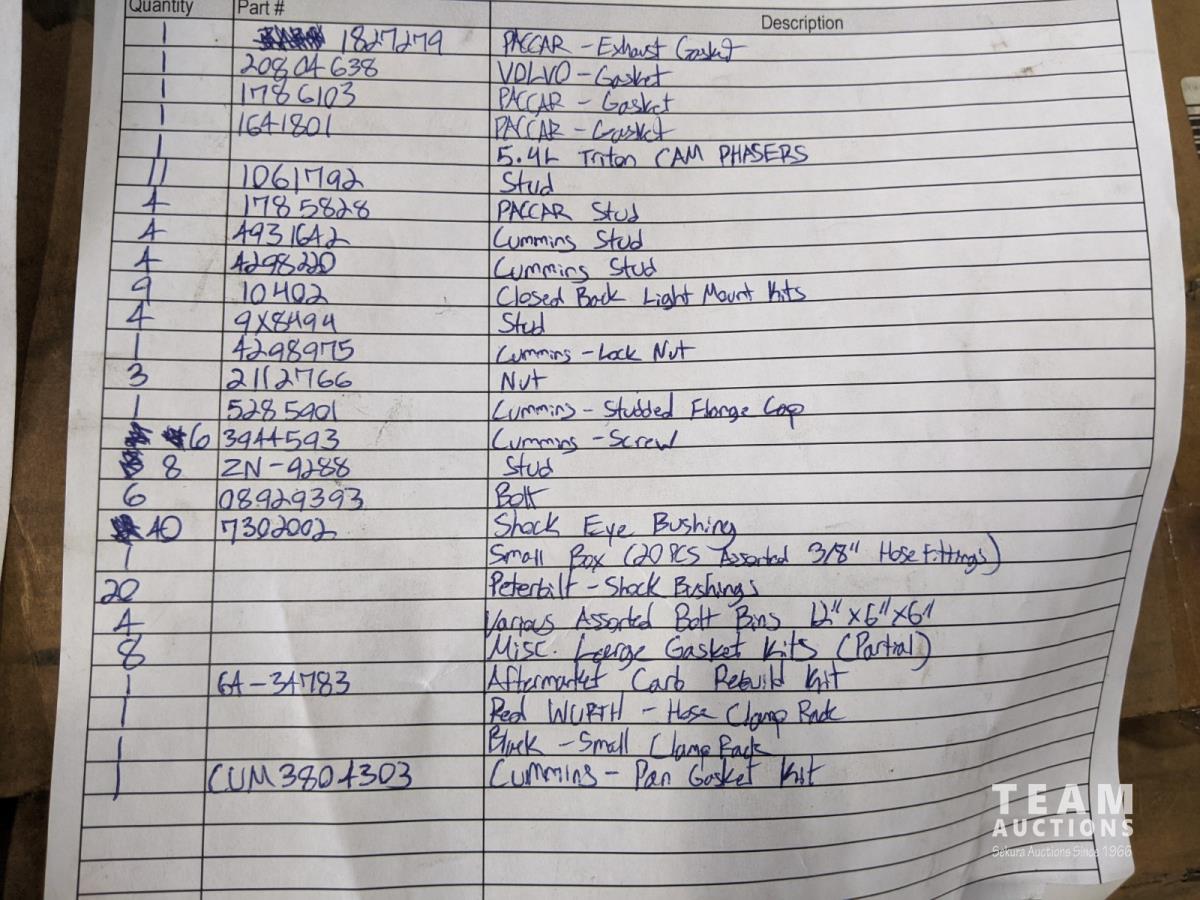 Quantity Part # Description
1 1827279 PACCAR - Exhaust Gasket
1 20804638 VOLVO - Gasket
1 1786103 PACCAR - Gasket
1 1641801 PACCAR - Gasket
1 5.4L Triton CAM PHASERS
11 1061792 Stud
4 1785828 PACCAR Stud
4 4931642 Cummins Stud
4 4298220 Cummins Stud
9 10402 Closed Back Light Mount Kits
4 9X8494 Stud
1 4298975 Cummins - Lock Nut
3 2112766 Nut
1 5285901 Cummins - Studded Flange Cap
6 3944593 Cummins - Screw
8 ZN-9288 Stud
6 08929393 Bolt
40 7302002 Shock Eye Bushing
1 Small Box (20 PCS Assorted 3/8" Hose Fittings)
20 Peterbilt - Shock Bushings
4 Various Assorted Bolt Bins 12" x 6" x 6"
8 Misc. Large Gasket Kits (Partial)
1 64-34783 Aftermarket Carb Rebuild Kit
1 Red WURTH - Hose Clamp Rack
1 Black - Small Clamp Rack
1 CUM3804303 Cummins - Pan Gasket Kit
TEAM
AUCTIONS
Sekura Auctions Since 1966